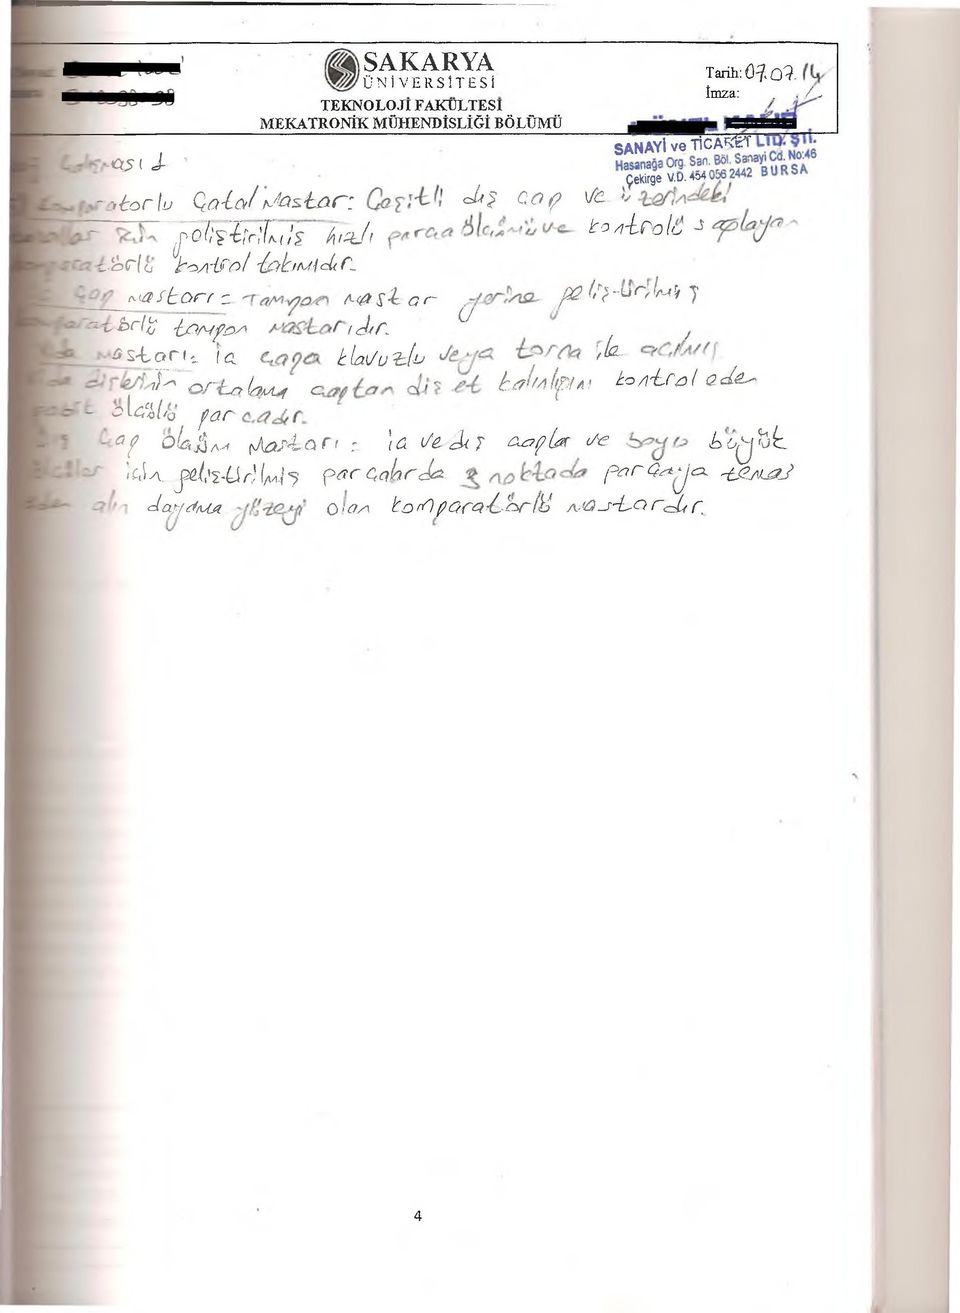 SAKARYA
ÜNİVERSİTESİ
TEKNOLOJİ FAKÜLTESİ
MEKATRONİK MÜHENDİSLİĞİ BÖLÜMÜ
Tarih: 07.07.14
İmza:
SANAYİ ve TİCARET LTD. ŞTİ.
Hasanağa Org. San. Böl. Sanayi Cd. No:46
Çekirge V.D. 454 056 2442 BURSA
Çatal Mastar: Çeşitli dış çap ve üzerindeki
için geliştirilmiş hızlı parça ölçümü ve kontrolü sağlayan
kontrol takımıdır.
Çap mastarı: Tampon mastar yerine geliştirilmiş
tampon mastarıdır.
mastarı: iç çapa klavuzlu veya torna ile açılmış
ortalama çaptan diş et kalınlığını kontrol eden
ölçülü parçadır.
Çap Ölçüm Mastarı: iç ve dış çaplar ve boyu büyük
için geliştirilmiş parçalarda 3 noktada parçaya temas
alın dayama yüzeyi olan komparatörlü mastardır.
4